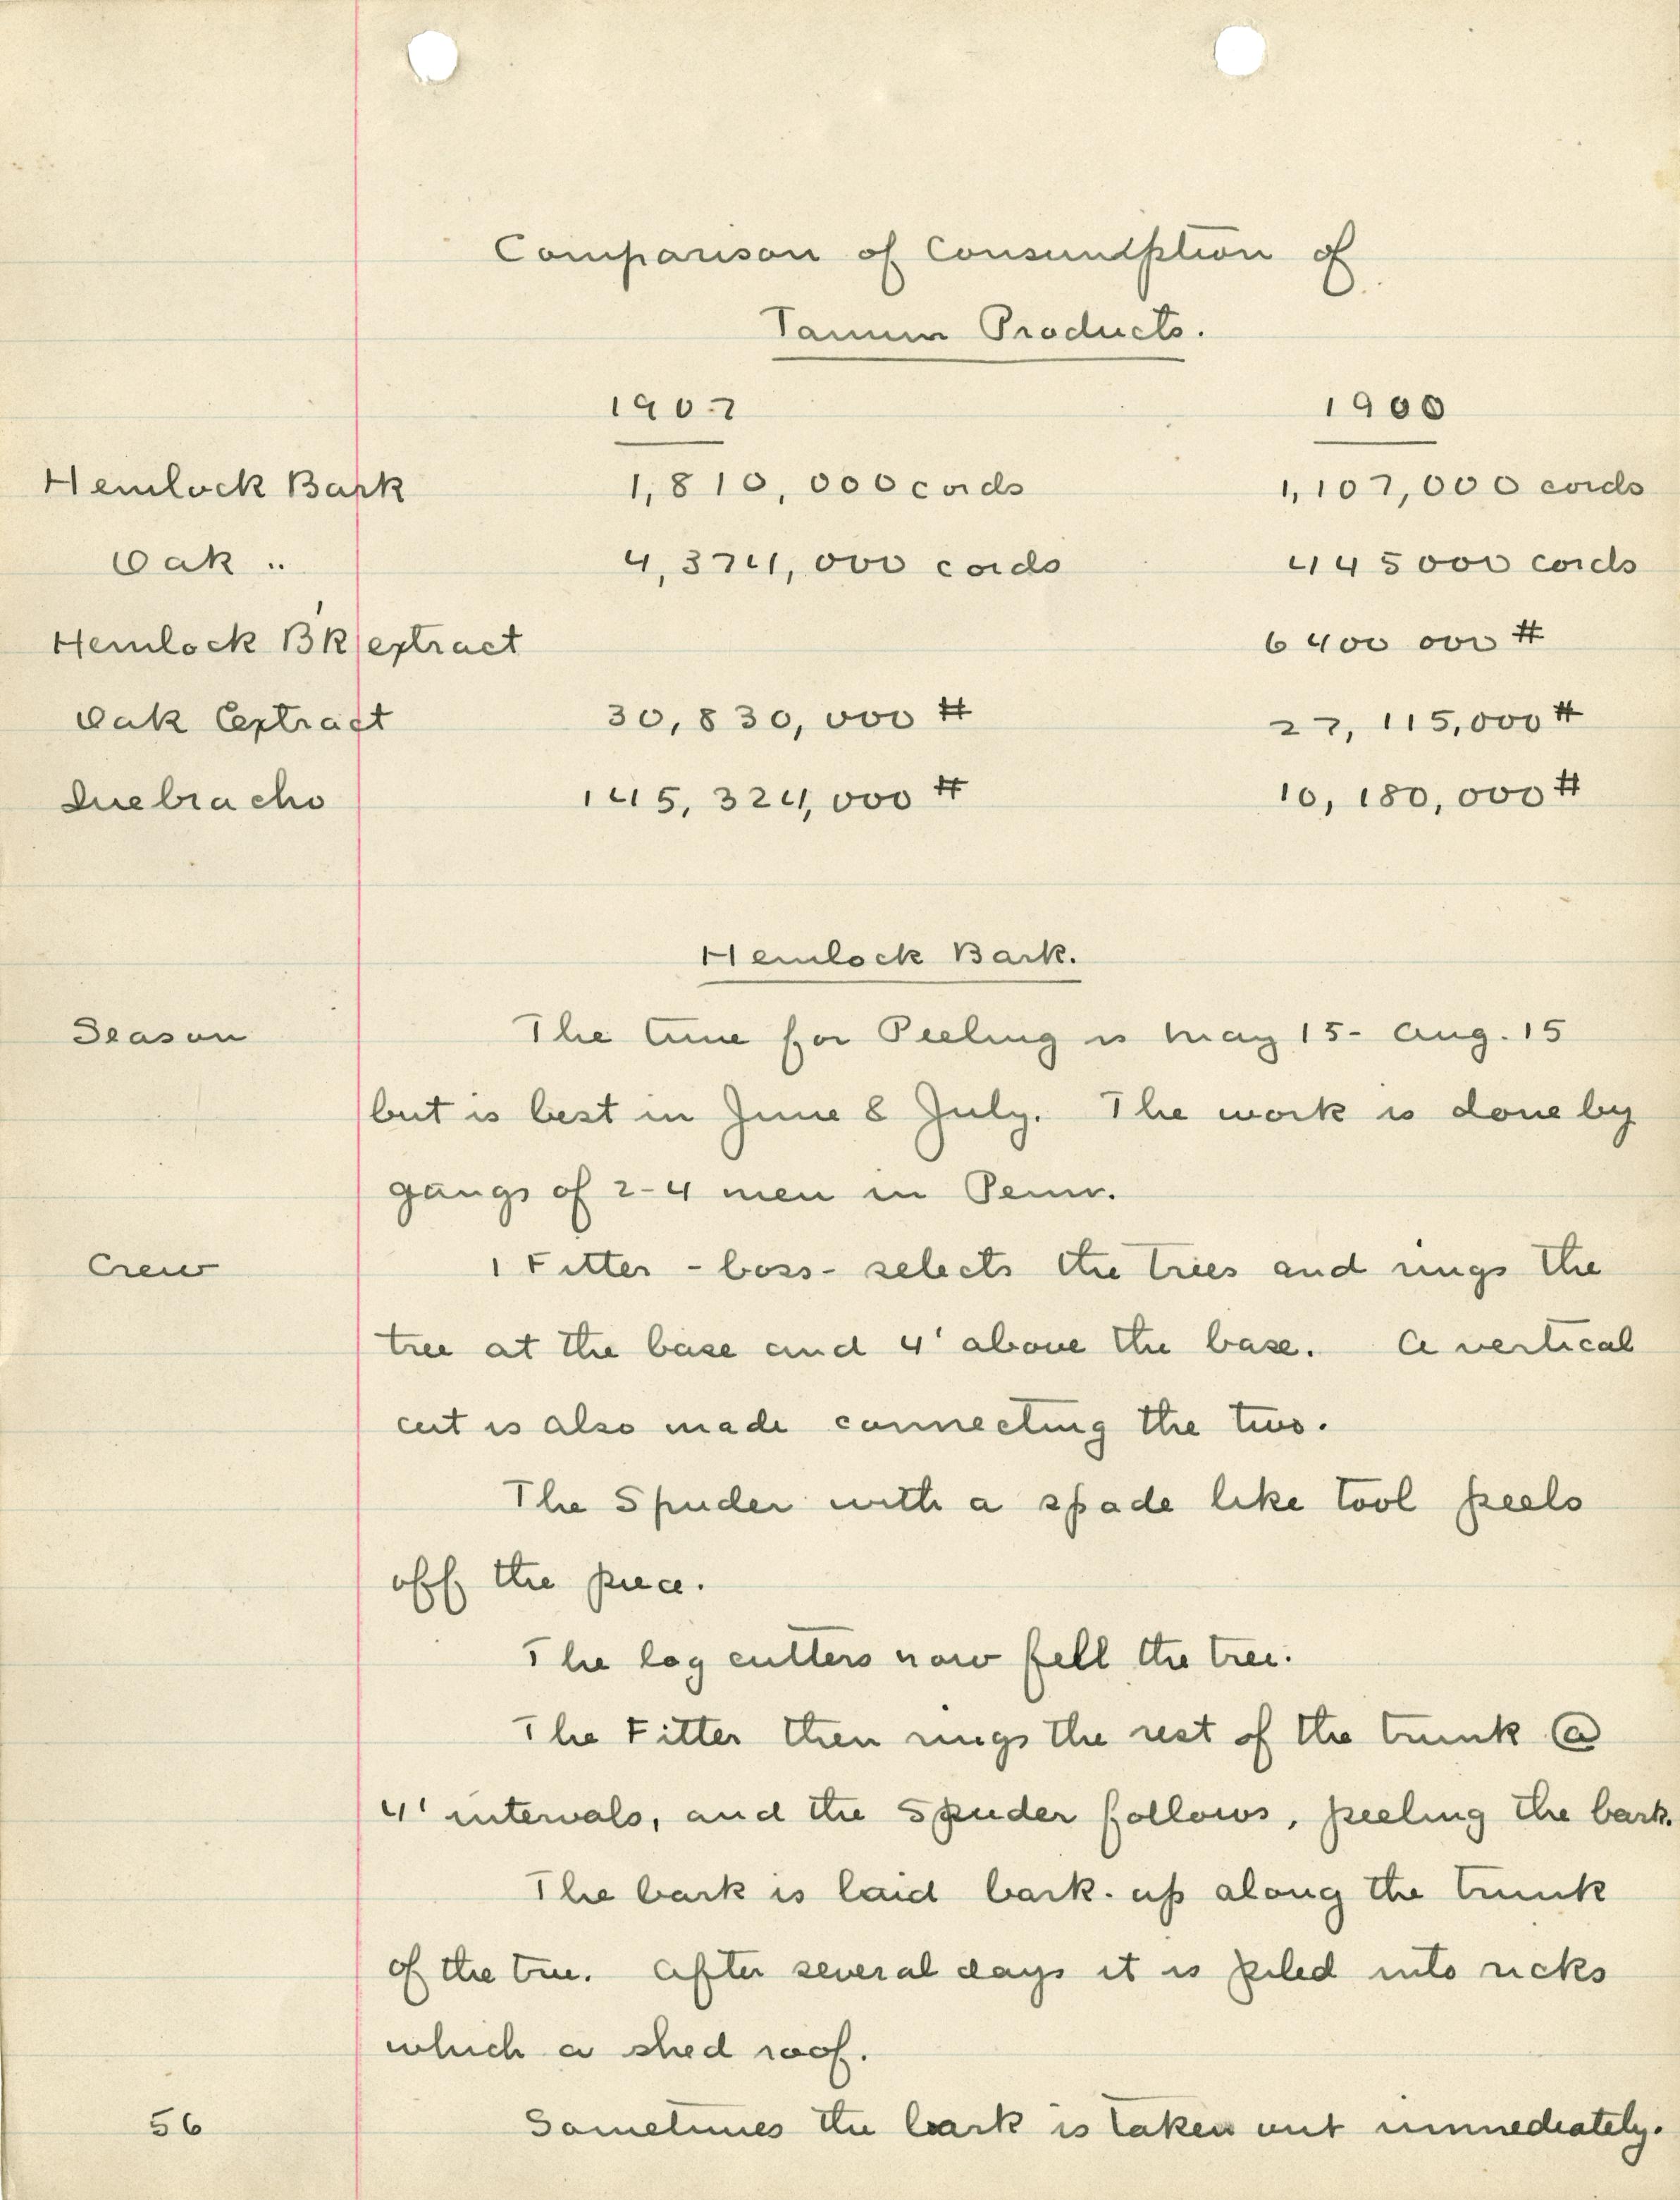 Comparison of Consumption of
Tannin Products.
1907 1900
Hemlock Bark 1,810,000 cords 1,107,000 cords
Oak " 4,374,000 cords 445000 cords
Hemlock B'k extract 6400 000 #
Oak Extract 30,830,000 # 27,115,000 #
Quebracho 145,324,000 # 10,180,000 #
Hemlock Bark.
Season The time for Peeling is May 15- Aug. 15
but is best in June & July. The work is done by
gangs of 2-4 men in Penn.
Crew 1 Fitter - boss - selects the trees and rings the
tree at the base and 4' above the base. A vertical
cut is also made connecting the two.
The Spuder with a spade like tool peels
off the piece.
The log cutters now fell the tree.
The Fitter then rings the rest of the trunk @
4' intervals, and the Spuder follows, peeling the bark.
The bark is laid bark-up along the trunk
of the tree. After several days it is piled into ricks
which a shed roof.
56 Sometimes the bark is taken out immediately.